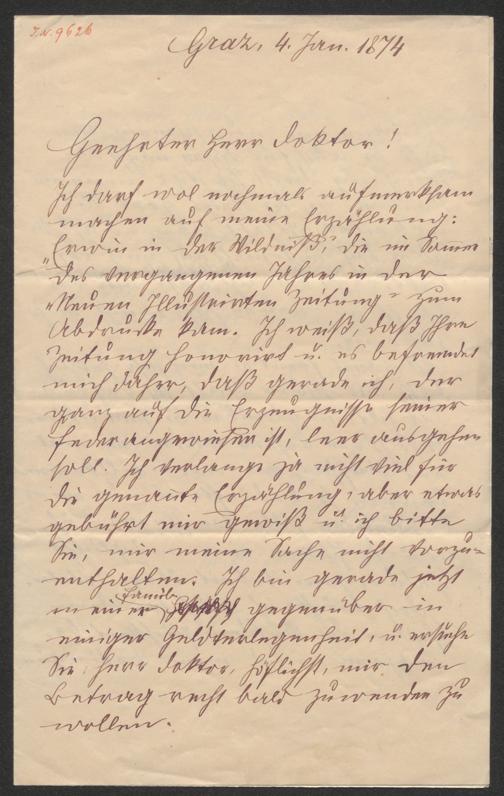 J.N. 9626
Graz, 4. Jan. 1874
Geehrter Herr Doktor!
Ich darf wol nochmals aufmerksam
machen auf meine Erzählung:
„Erwin in der Wildniß“, die im Sommer
des vergangenen Jahres in der
„Neuen Illustrirten Zeitung“ zum
Abdrucke kam. Ich weiß, daß Ihre
Zeitung honorirt u. es befremdet
mich daher, daß gerade ich, der
ganz auf die Erzeugnisse seiner
Feder angewiesen ist, leer ausgehen
soll. Ich verlange ja nicht viel für
die genannte Erzählung, aber etwas
gebührt mir gewiß u. ich bitte
Sie, mir meine Sache nicht vorzu-
enthalten. Ich bin gerade jetzt
meiner Familie gegenüber in
einiger Geldverlegenheit, u. ersuche
Sie, Herr Doktor, höflichst, mir den
Betrag recht bald zuwenden zu
wollen.